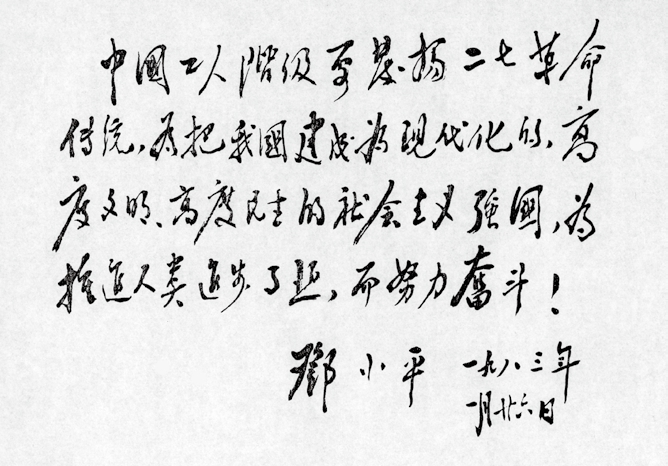 中國工人階级要發揚二七革命
传统，为把我國建成为现代化的、高
度文明、高度民主的社会主义强國，为
推進人类進步事业，而努力奮斗！
鄧小平 一九八三年
一月廿六日